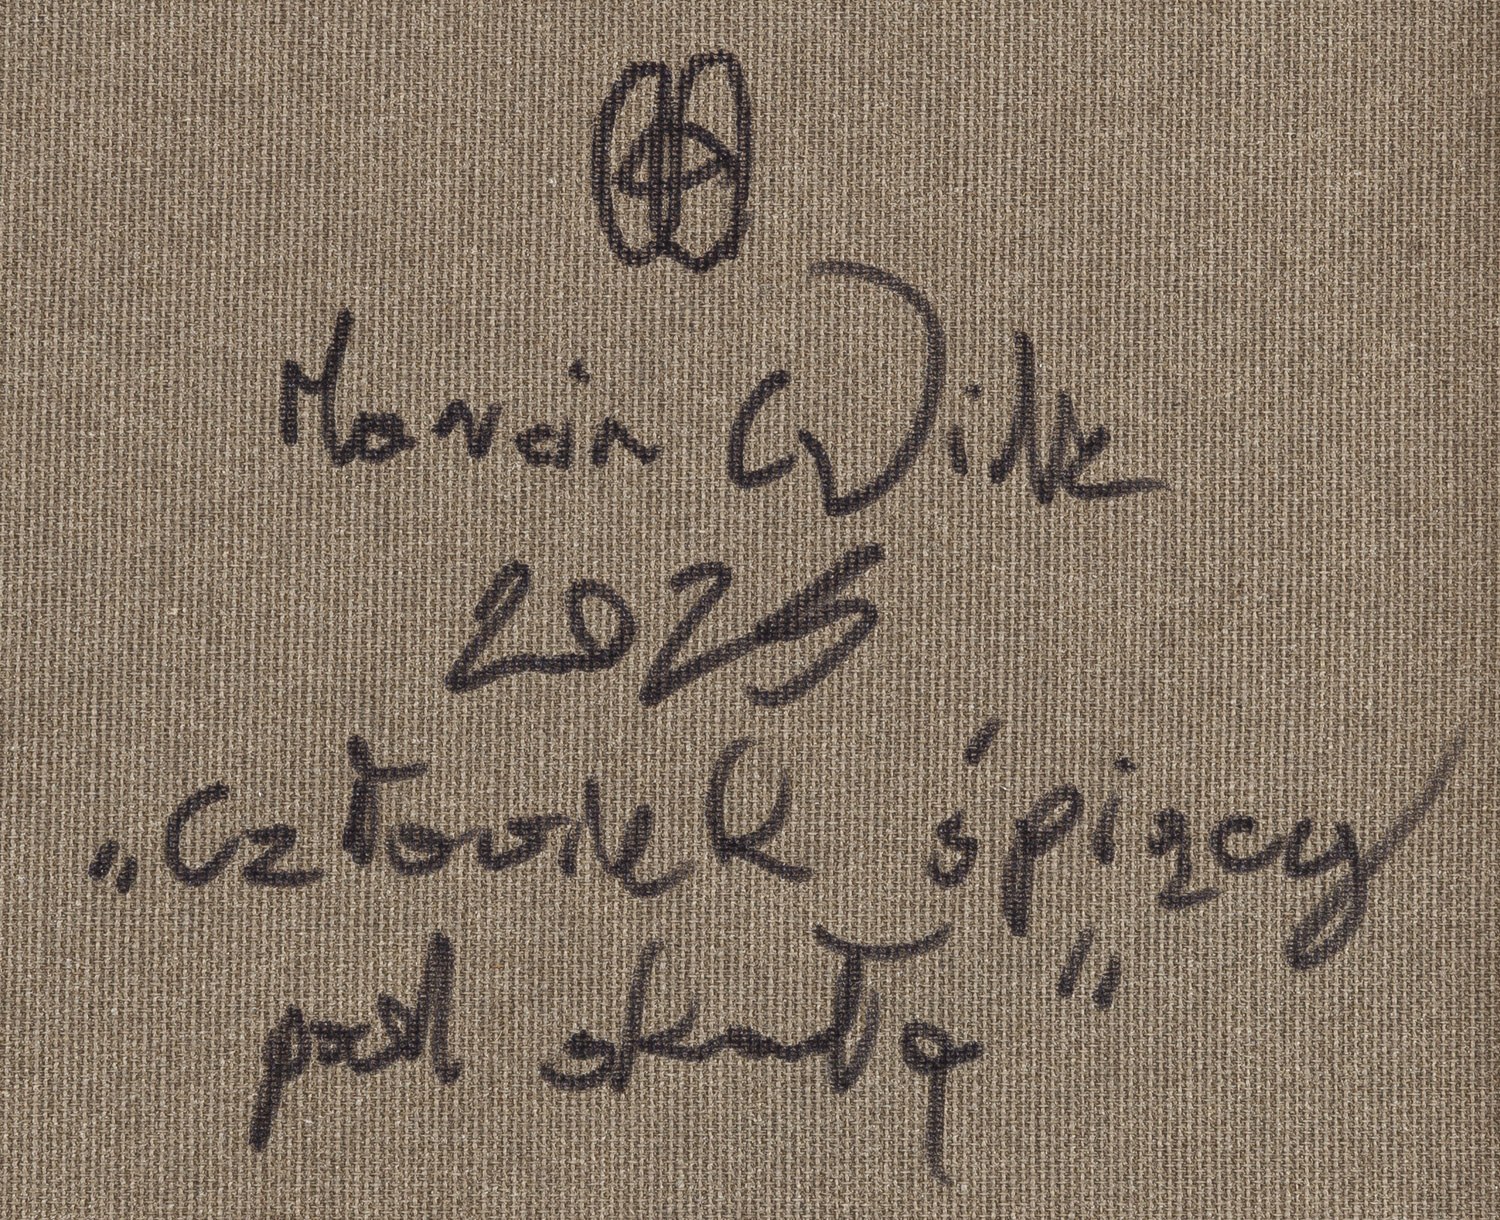 Marcin Wilk
2025
„Człowiek śpiący
pod skałą"